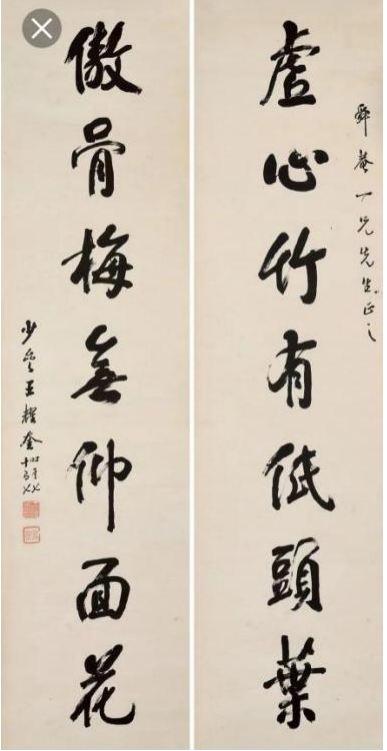 舜菴兄先生正之
虛心竹有低頭葉
傲骨梅無仰面花
少王耀奎